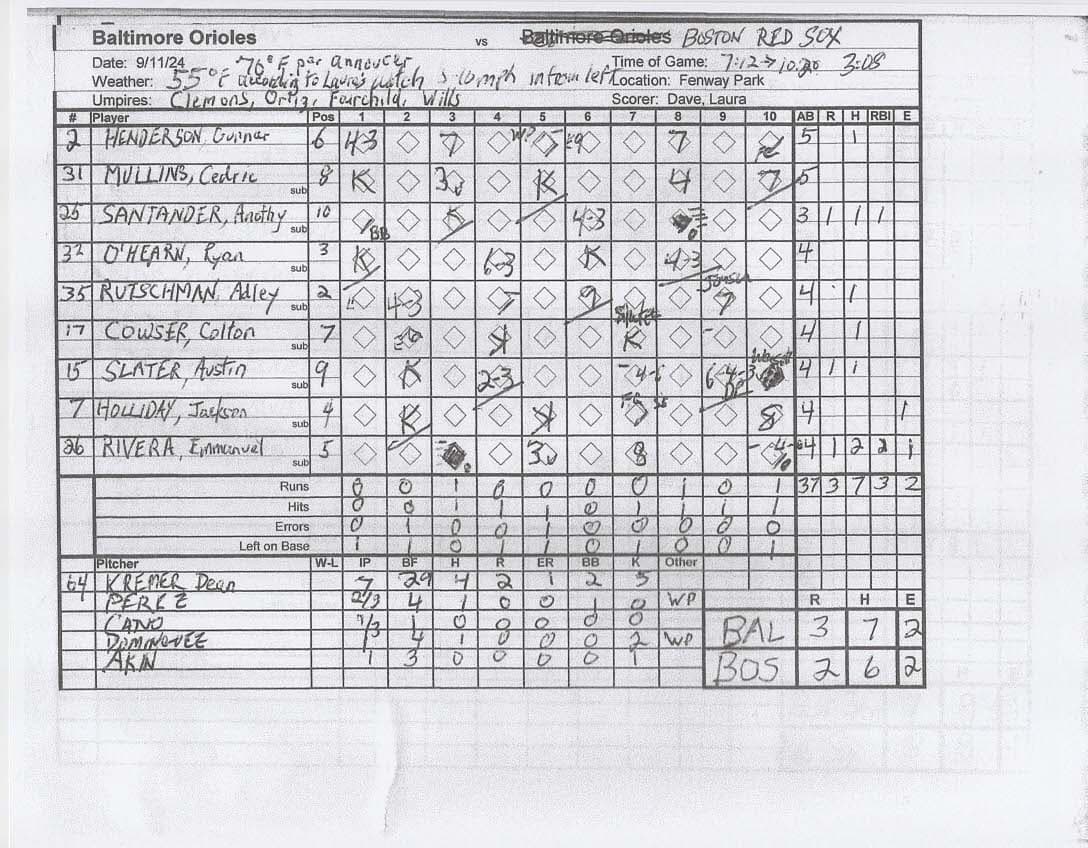 Baltimore Orioles vs Baltimore Orioles BOSTON RED SOX
Date: 9/11/24 76°F par annoucer Time of Game: 7:12 → 10:20 3:08
Weather: 55°F according to Laura's watch, 5-10 mph in from left Location: Fenway Park
Umpires: Clemons, Ortiz, Fairchild, Wills Scorer: Dave, Laura
# Player Pos 1 2 3 4 5 6 7 8 9 10 AB R H RBI E
2 HENDERSON, Gunnar 6 4-3 7 WP 7 5 1
31 MULLINS, Cedric sub 8 K 3u K 4 7 5
25 SANTANDER, Anothy sub 10 BB K 4-3 3 1 1 1
32 O'HEARN, Ryan sub 3 K 6-3 K 4-3 4
35 RUTSCHMAN, Adley sub 2 4-3 9 7 4 1
17 COWSER, Colton sub 7 K K 4 1
15 SLATER, Austin sub 9 K 2-3 4-6 6-4-3 4 1 1
7 HOLLIDAY, Jackson sub 4 K K 8 4 1
26 RIVERA, Emmanuel sub 5 3u 8 4 1 2 2 1
Runs 0 0 1 0 0 0 0 1 0 1 37 3 7 3 2
Hits 0 0 1 1 1 0 1 1 1 1
Errors 0 1 0 0 1 0 0 0 0 0
Left on Base 1 1 0 1 1 0 1 0 0 1
Pitcher W-L IP BF H R ER BB K Other
64 KREMER, Dean 7 29 4 2 1 2 5
PEREZ 2/3 4 1 0 0 1 0 WP R H E
CANO 1/3 1 0 0 0 0 0 BAL 3 7 2
DOMINGUEZ 1 4 1 0 0 0 2 WP
AKIN 1 3 0 0 0 0 1 BOS 2 6 2